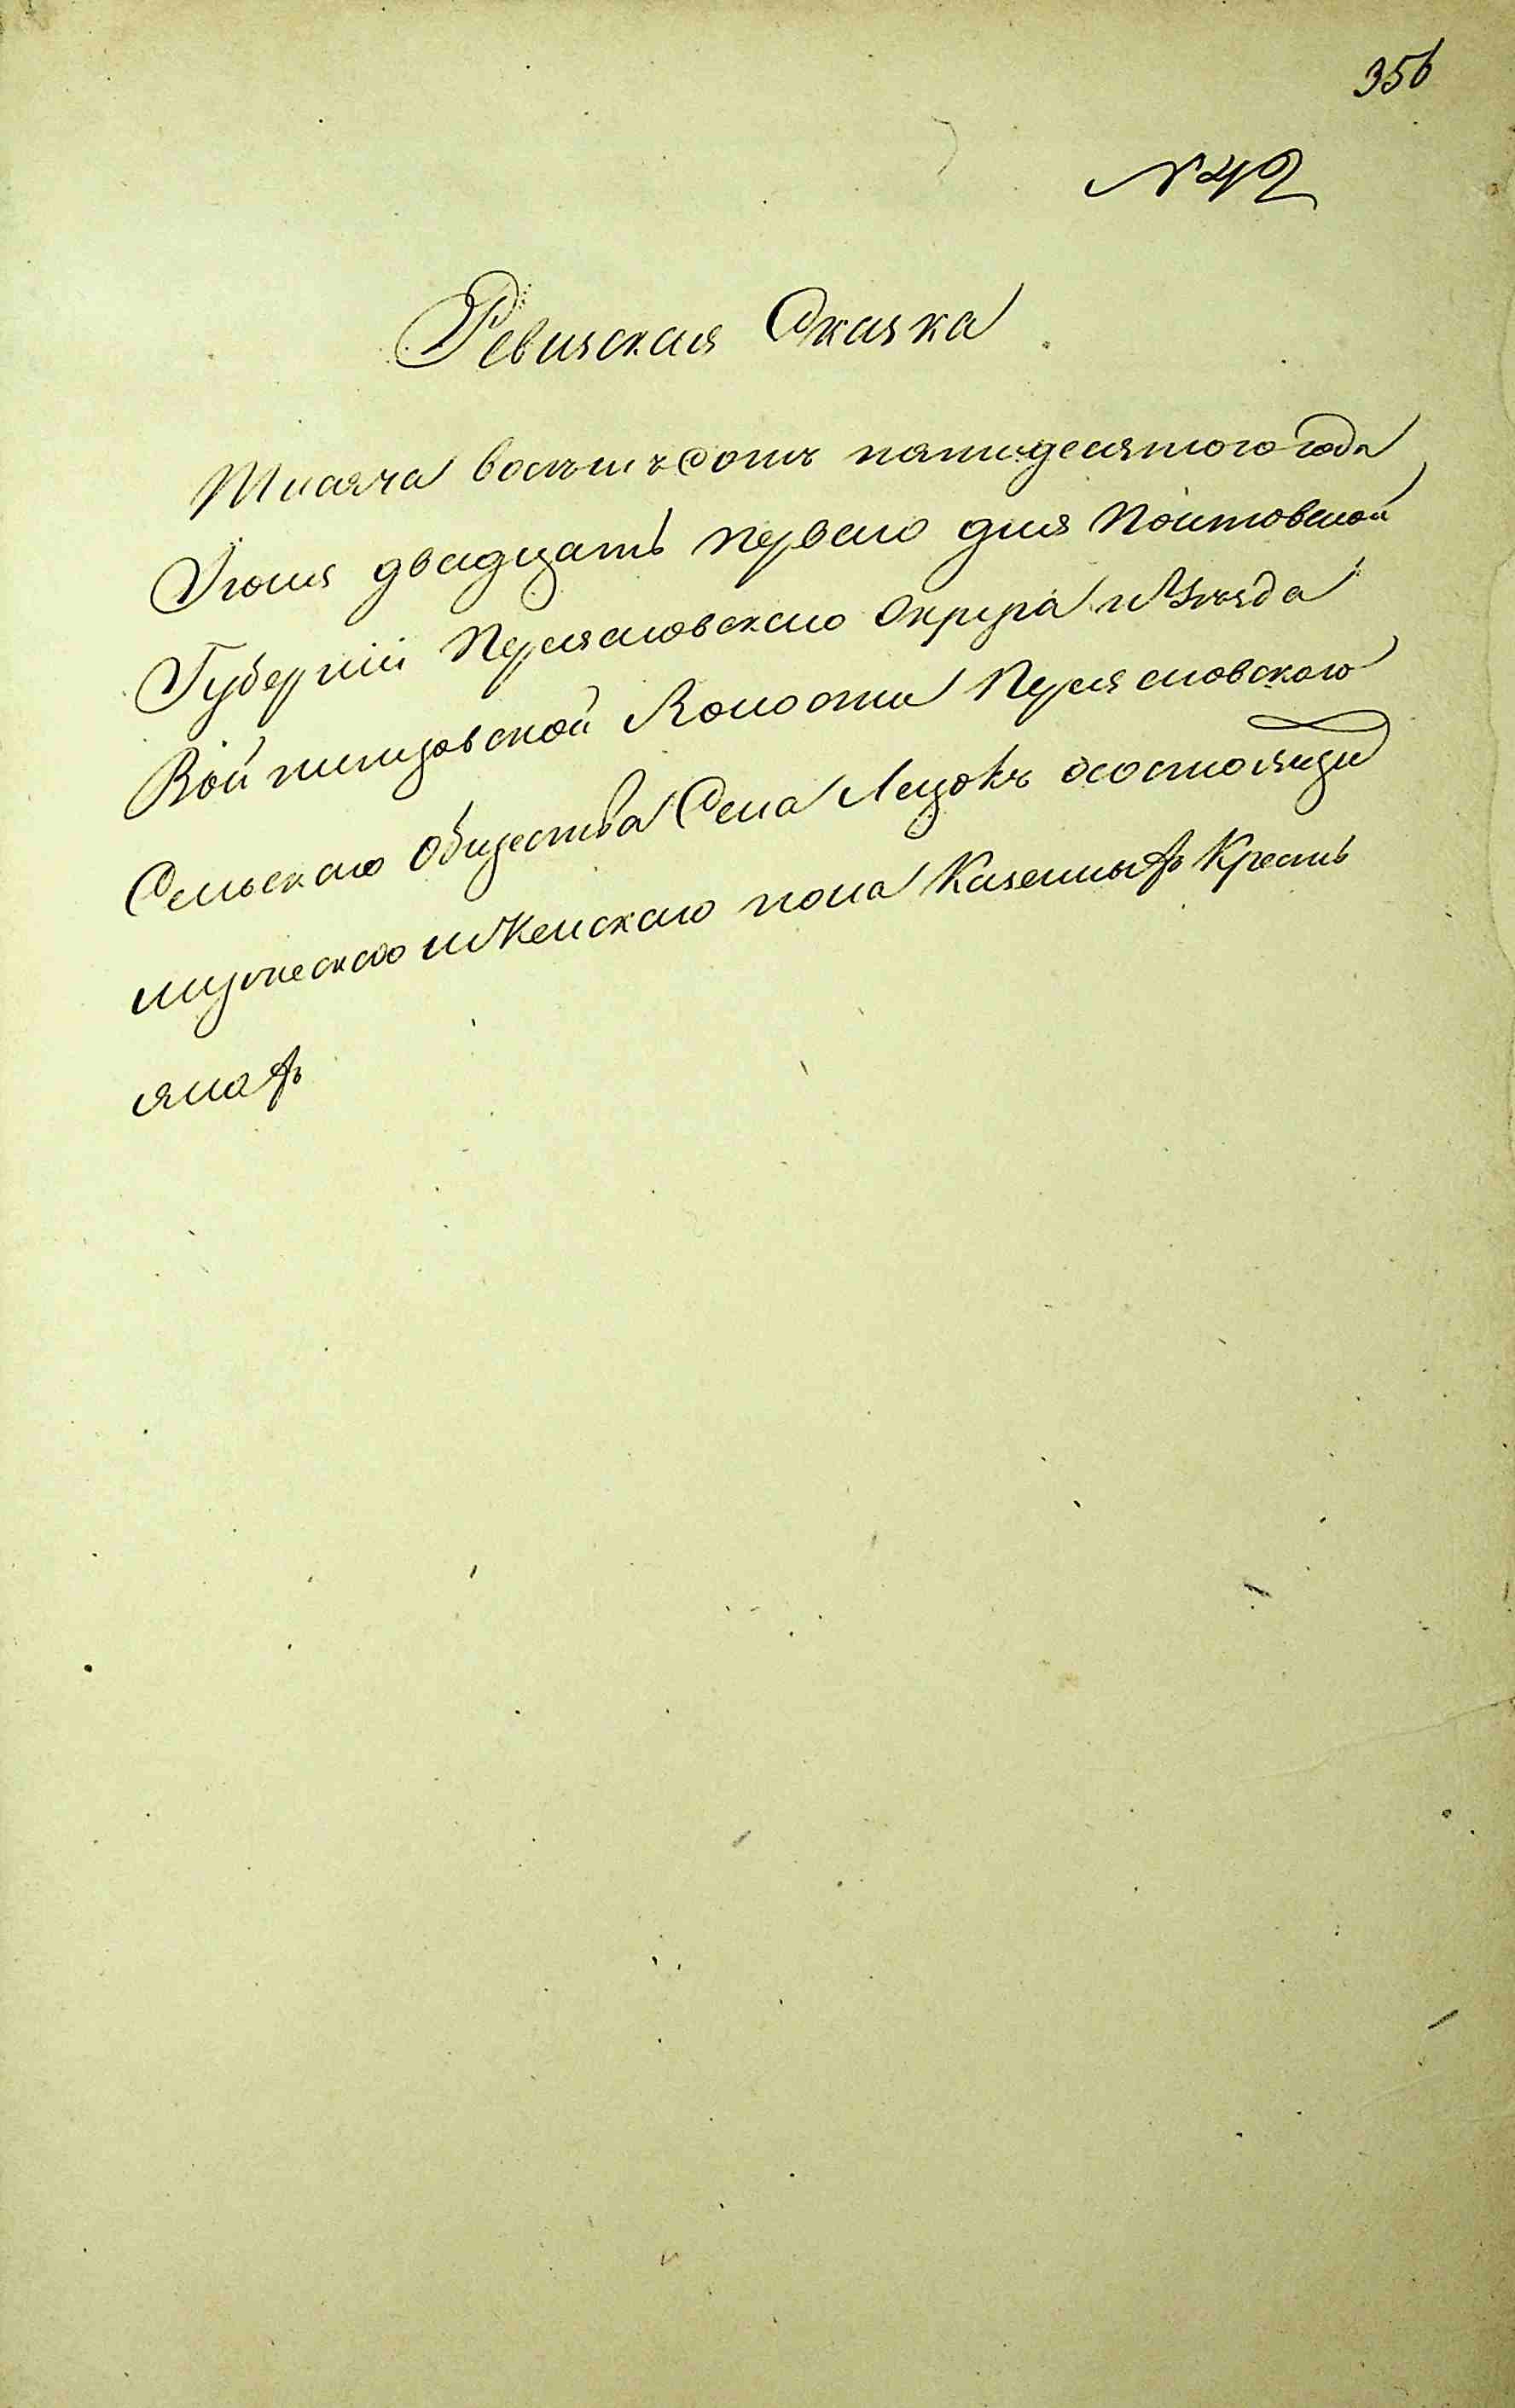 356
№ 42
Ревизская Сказка
Тисяча восемъ Сотъ пятидесятого года
Іюня двадцать перваго дня Полтовской
Губерніи Переяславскаго Округа и Уезда
Войтовской Волости Переяславского
Сельскаго Общества Села Лецокъ о состоящи
мужескаго и Женскаго пола Казенныхъ Кресть
янахъ